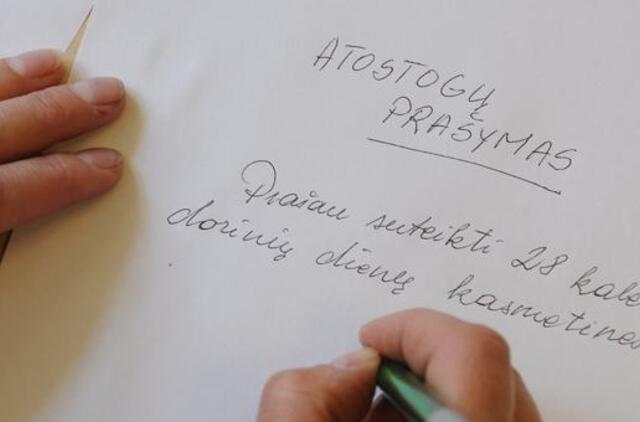 ATOSTOGŲ
PRAŠYMAS
Prašau suteikti 28 kale
dorinių dienų kasmetines